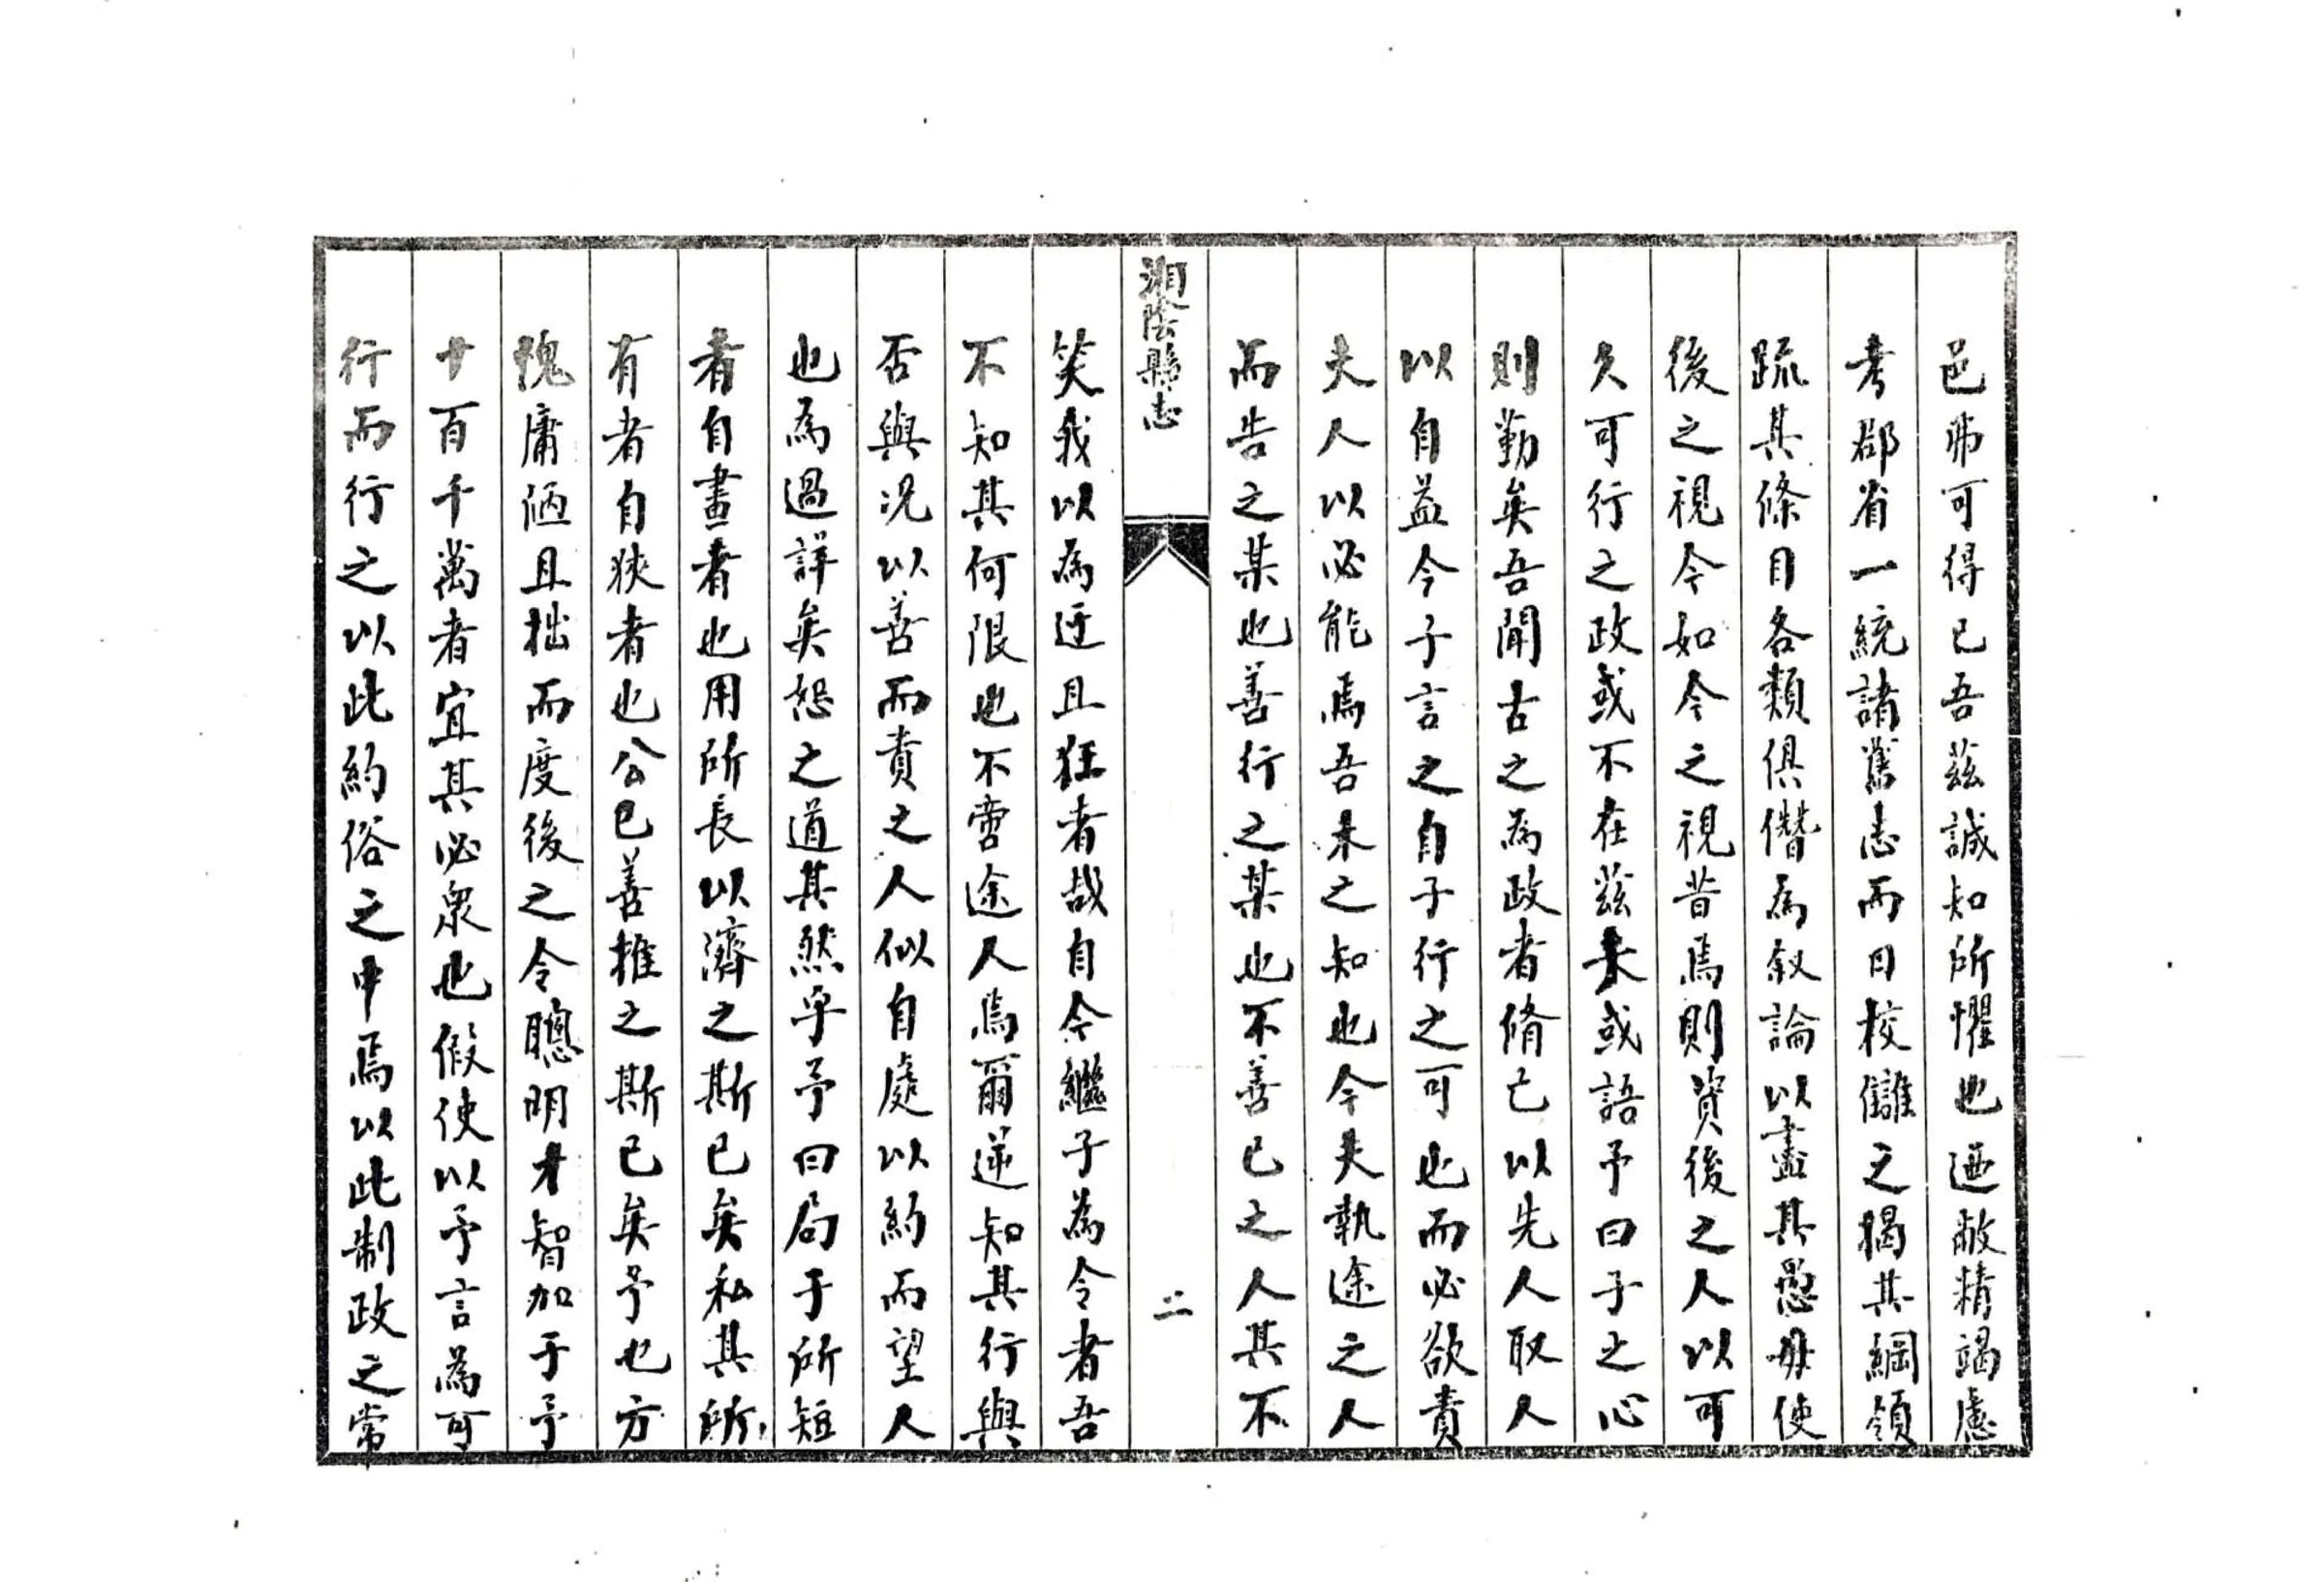 邑弗可得已吾茲誠知所懼也迺敝精竭慮
考郡省一統諸舊志而日校讎之揭其綱領
疏其條目各類俱僭為敘論以盡其愚毋使
後之視今如今之視昔焉則資後之人以可
久可行之政或不在茲未或語予曰子之心
則勤矣吾聞古之為政者脩己以先人取人
以自益今子言之自子行之可也而必欲責
夫人以必能焉吾未之知也今夫執途之人
而告之某也善行之某也不善已之人其不
湘陰縣志
二
笑我以為迂且狂者哉自今繼子為令者吾
不知其何限也不啻途人焉爾逆知其行與
否與況以善而責之人似自處以約而望人
也為過詳矣恕之道其然乎予曰局于所短
者自畫者也用所長以濟之斯已矣私其所
有者自狹者也公己善推之斯已矣予也方
愧庸陋且拙而度後之令聰明才智加于予
十百千萬者宜其必衆也假使以予言為可
行而行之以此約俗之中焉以此制政之常